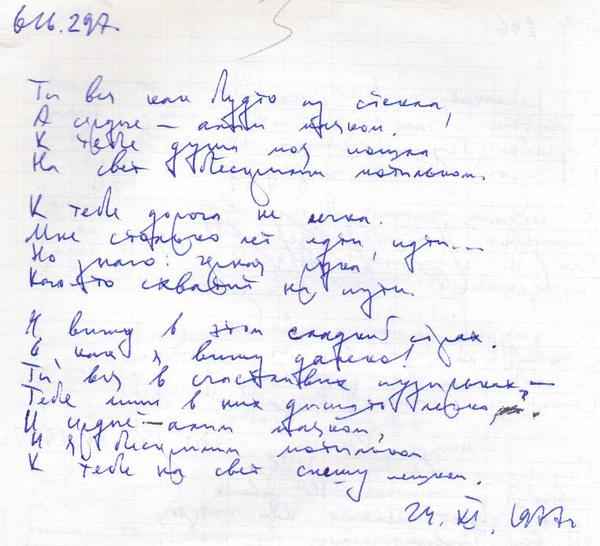 616.297.
Ты вся как будто из стекла,
А сердце — алым маяком.
К тебе душа моя пошла
На свет бесшумным мотыльком.
К тебе дорога не легка.
Мне столько лет идти, идти...
Но знаю: чёрная рука
Кого-то схватит на пути.
Я вижу в этом сладкий страх.
О, как я вижу далеко!
Ты вся в счастливых пузырьках, —
Тебе лишь в них дышать легко.
И сердце — алым маяком,
И я бесшумным мотыльком
К тебе на свет спешу
24. XI. 1977г